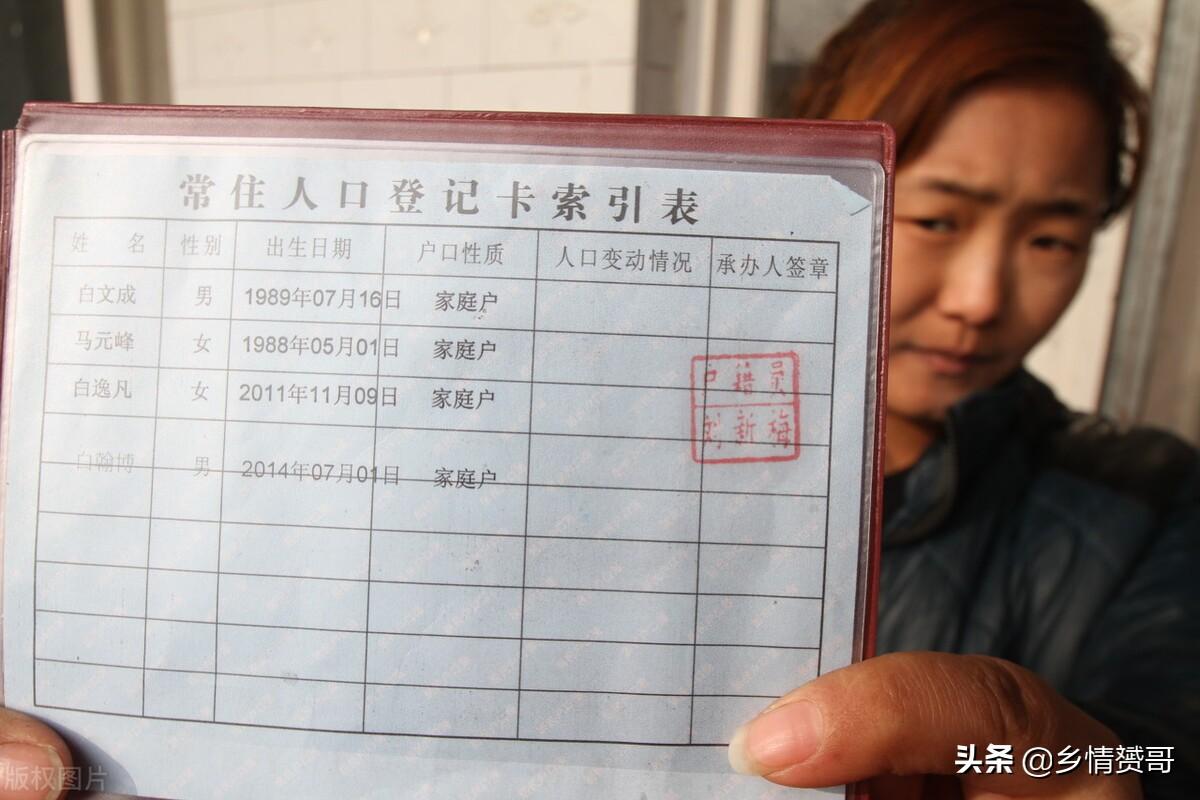 常住人口登记卡索引表
姓 名 性别 出生日期 户口性质 人口变动情况 承办人签章
白文成 男 1989年07月16日 家庭户
马元峰 女 1988年05月01日 家庭户
白逸凡 女 2011年11月09日 家庭户
白翰博 男 2014年07月01日 家庭户
户籍员
刘新梅
版权图片
头条 @乡情赟哥